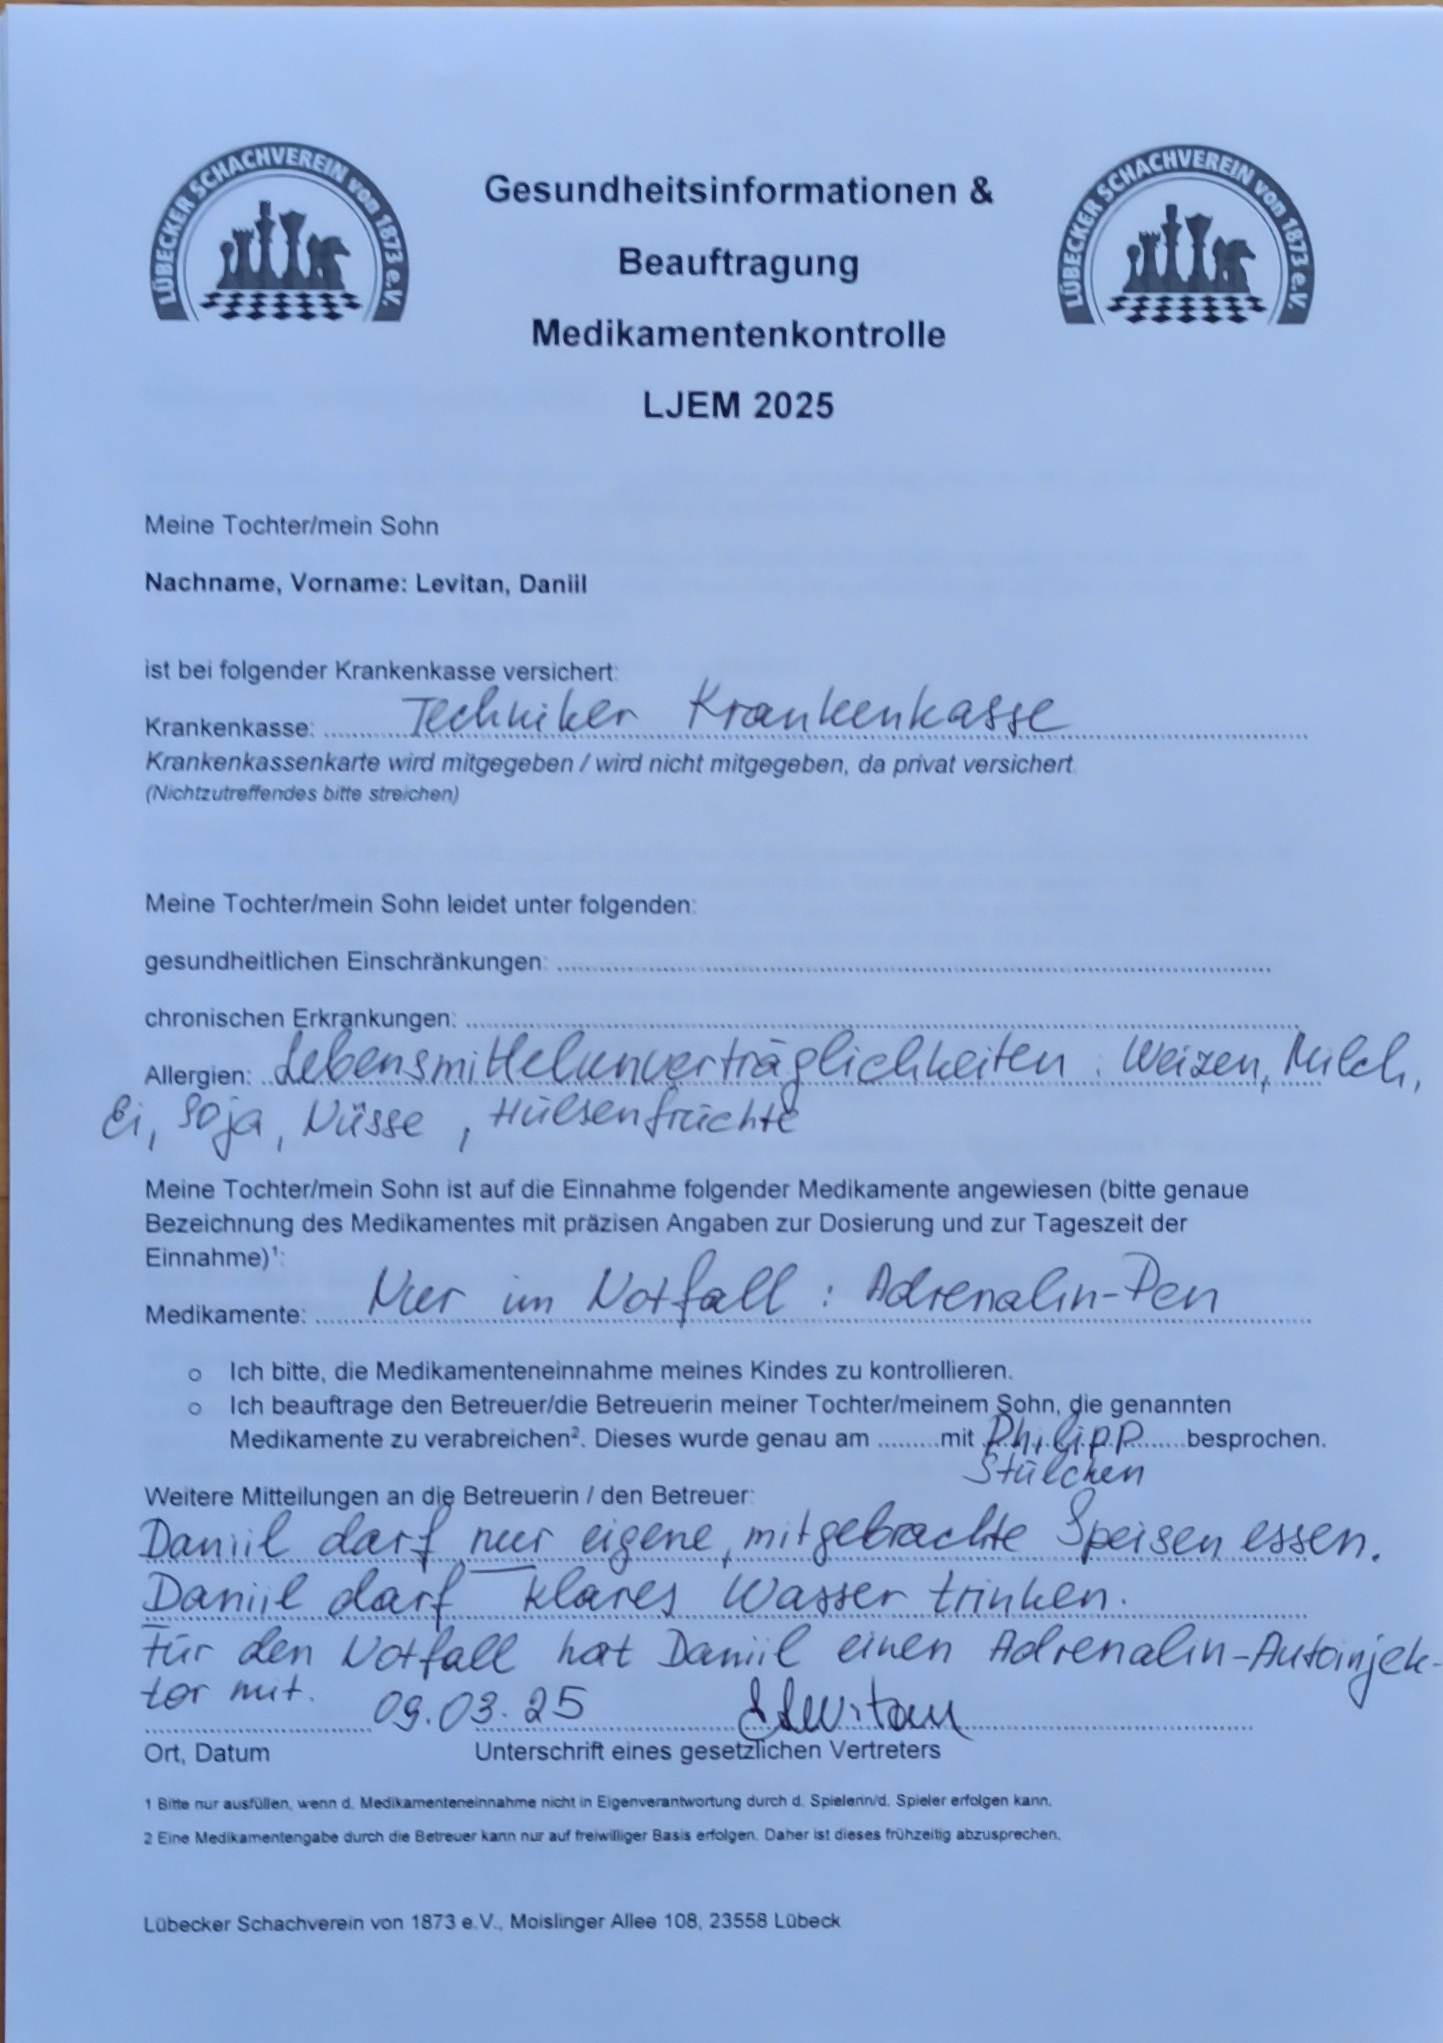 LÜBECKER SCHACHVEREIN von 1873 e.V.
LÜBECKER SCHACHVEREIN von 1873 e.V.
Gesundheitsinformationen &
Beauftragung
Medikamentenkontrolle
LJEM 2025
Meine Tochter/mein Sohn
Nachname, Vorname: Levitan, Daniil
ist bei folgender Krankenkasse versichert:
Krankenkasse: Techniker Krankenkasse
Krankenkassenkarte wird mitgegeben / wird nicht mitgegeben, da privat versichert.
(Nichtzutreffendes bitte streichen)
Meine Tochter/mein Sohn leidet unter folgenden:
gesundheitlichen Einschränkungen:
chronischen Erkrankungen:
Allergien: Lebensmittelunverträglichkeiten : Weizen, Milch,
Ei, Soja, Nüsse, Hülsenfrüchte
Meine Tochter/mein Sohn ist auf die Einnahme folgender Medikamente angewiesen (bitte genaue
Bezeichnung des Medikamentes mit präzisen Angaben zur Dosierung und zur Tageszeit der
Einnahme)¹:
Medikamente: Nur im Notfall : Adrenalin-Pen
o Ich bitte, die Medikamenteneinnahme meines Kindes zu kontrollieren.
o Ich beauftrage den Betreuer/die Betreuerin meiner Tochter/meinem Sohn, die genannten
Medikamente zu verabreichen². Dieses wurde genau am .........mit Philipp besprochen.
Stülcken
Weitere Mitteilungen an die Betreuerin / den Betreuer:
Daniil darf nur eigene, mitgebrachte Speisen essen.
Daniil darf klares Wasser trinken.
Für den Notfall hat Daniil einen Adrenalin-Autoinjek-
tor mit. 09.03.25 Levitan
Ort, Datum Unterschrift eines gesetzlichen Vertreters
1 Bitte nur ausfüllen, wenn d. Medikamenteneinnahme nicht in Eigenverantwortung durch d. Spielerin/d. Spieler erfolgen kann.
2 Eine Medikamentengabe durch die Betreuer kann nur auf freiwilliger Basis erfolgen. Daher ist dieses frühzeitig abzusprechen.
Lübecker Schachverein von 1873 e.V., Moislinger Allee 108, 23558 Lübeck